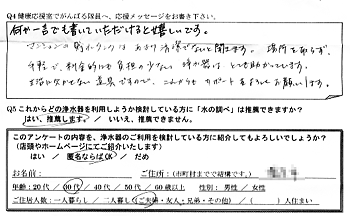 Q4 健康応援室でがんばる隊員へ、応援メッセージをお書き下さい。
何か一言でも書いていただけると嬉しいです。
マンションの貯水タンクはあまり清潔でないと聞きます。場所を取らず、
手軽で、料金的にも負担の少ない浄水器はとても助かっています。
生活に欠かせない道具ですので、これからもサポートをよろしくお願いします。
Q5 これからどの浄水器を利用しようか検討している方に「水の調べ」は推奨できますか?
はい、推奨します。 / いいえ、推奨できません。
このアンケートの内容を、浄水器のご利用を検討している方に紹介してもよろしいでしょうか?
(店頭やホームページにてご紹介いたします)
はい / 匿名ならばOK / だめ
お名前: ご住所:(市町村までで結構です。)
年齢:20代 / 30代 / 40代 / 50代 / 60歳以上 性別:男性 / 女性
ご住居人数:一人暮らし / 二人暮し(ご夫婦・友人・兄弟・その他) / ( )人住まい